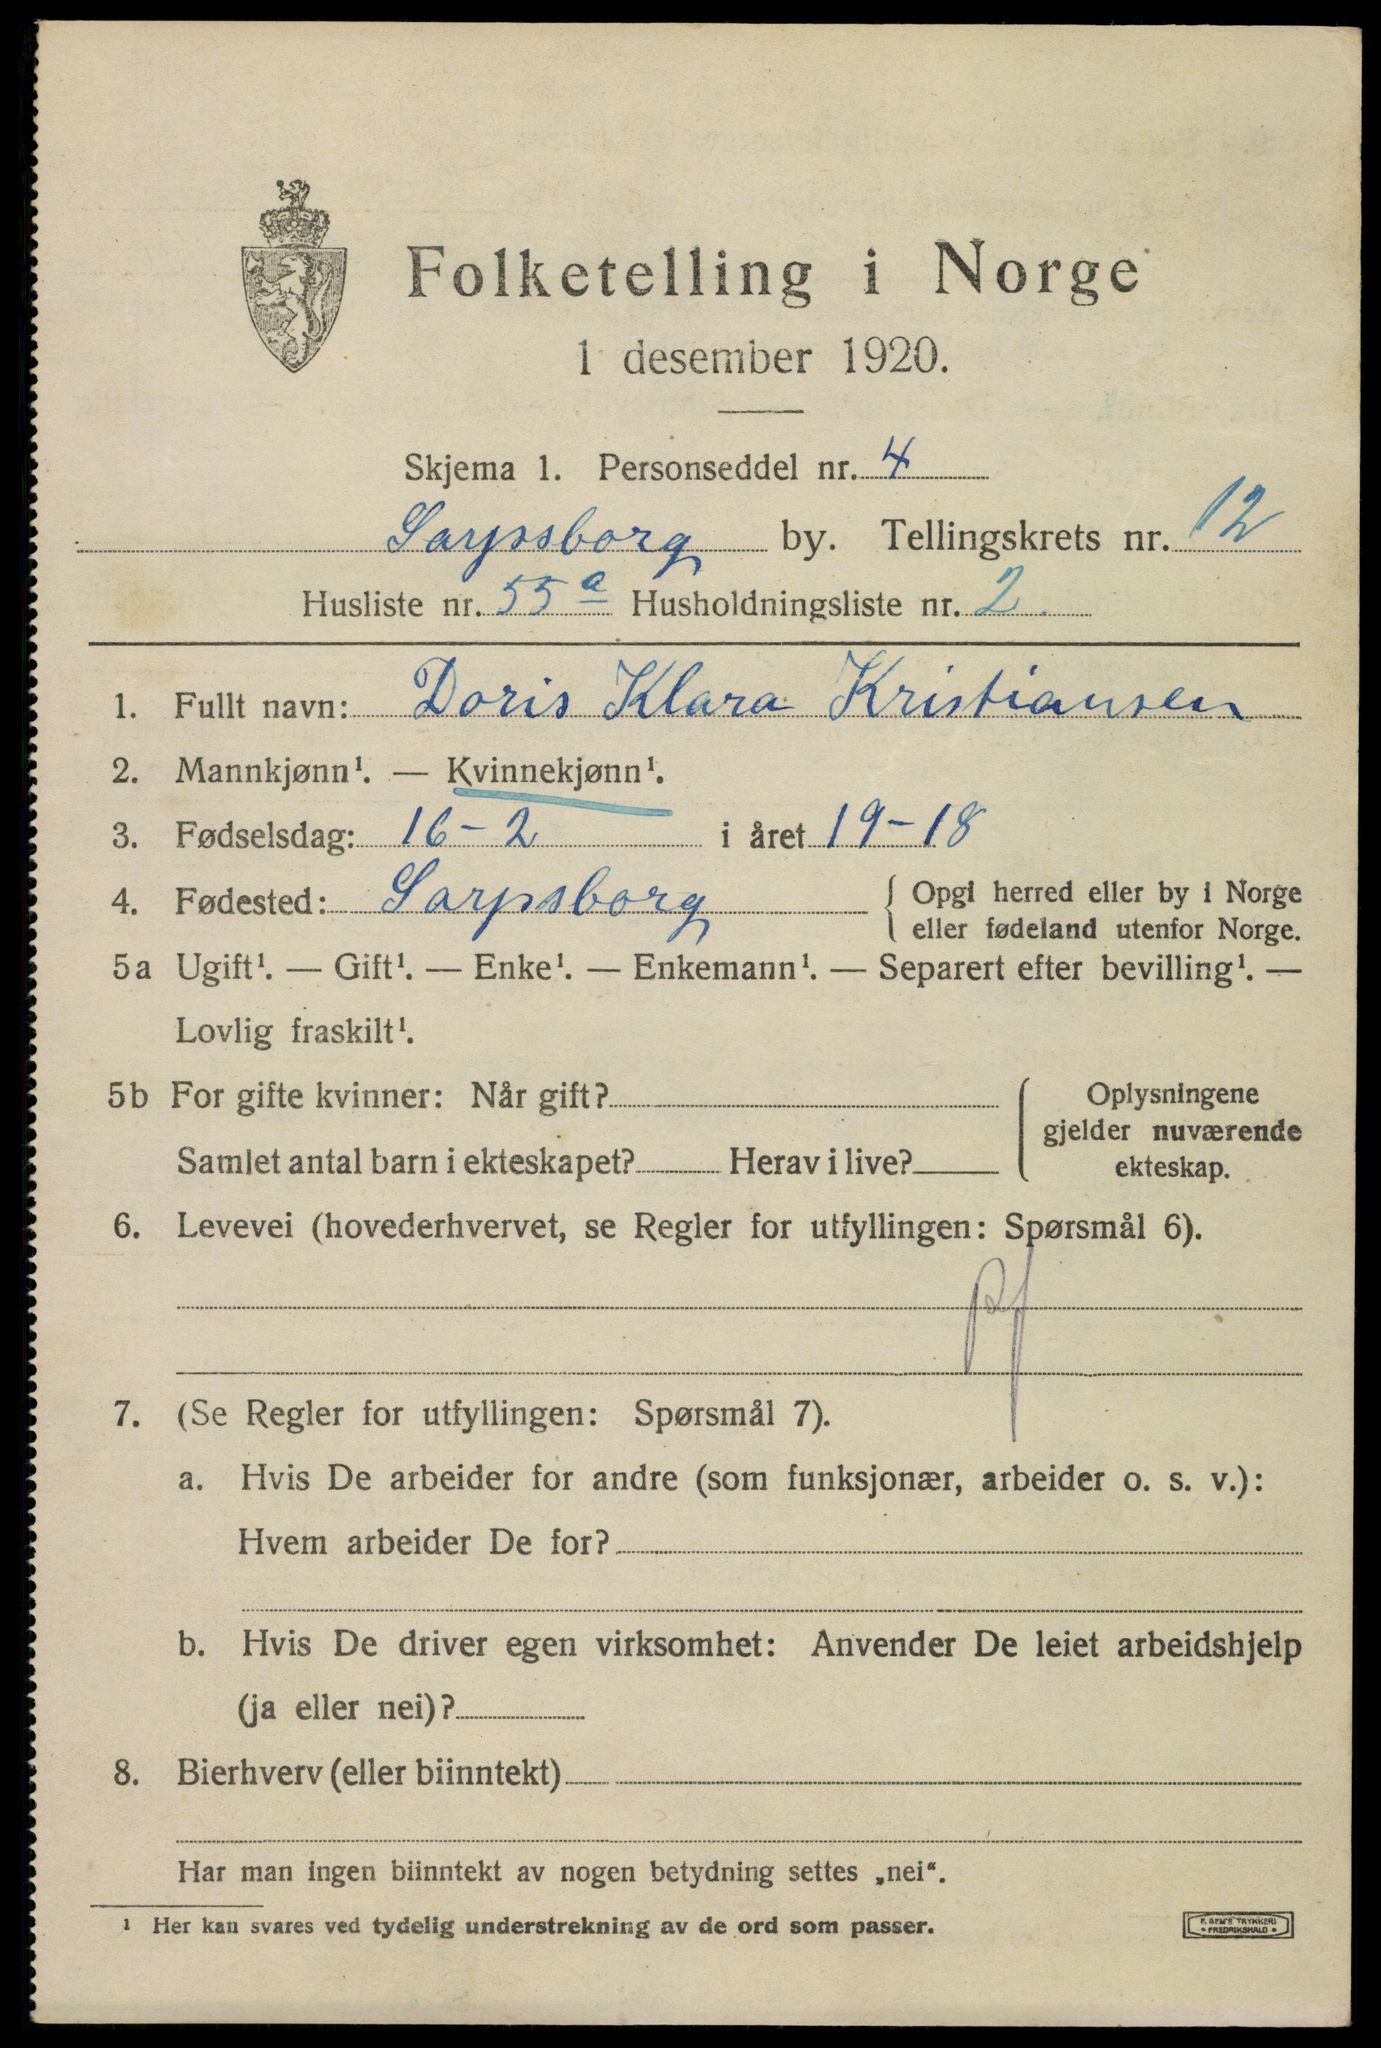 Folketelling i Norge
1 desember 1920.
Skjema 1. Personseddel nr. 4
Sarpsborg by. Tellingskrets nr. 12
Husliste nr. 55a Husholdningsliste nr. 2.
1. Fullt navn: Doris Klara Kristiansen
2. Mannkjønn¹. — Kvinnekjønn¹.
3. Fødselsdag: 16-2 i året 19-18
4. Fødested: Sarpsborg { Opgi herred eller by i Norge
eller fødeland utenfor Norge.
5a Ugift¹. — Gift¹. — Enke¹. — Enkemann¹. — Separert efter bevilling¹. —
Lovlig fraskilt¹.
5b For gifte kvinner: Når gift? Oplysningene
gjelder nuværende
Samlet antal barn i ekteskapet? Herav i live? ekteskap.
6. Levevei (hovederhvervet, se Regler for utfyllingen: Spørsmål 6).
7. (Se Regler for utfyllingen: Spørsmål 7).
a. Hvis De arbeider for andre (som funksjonær, arbeider o. s. v.):
Hvem arbeider De for?
b. Hvis De driver egen virksomhet: Anvender De leiet arbeidshjelp
(ja eller nei)?
8. Bierhverv (eller biinntekt)
Har man ingen biinntekt av nogen betydning settes „nei“.
¹ Her kan svares ved tydelig understrekning av de ord som passer.
E. SEM'S TRYKKERI
• FREDRIKSHALD •